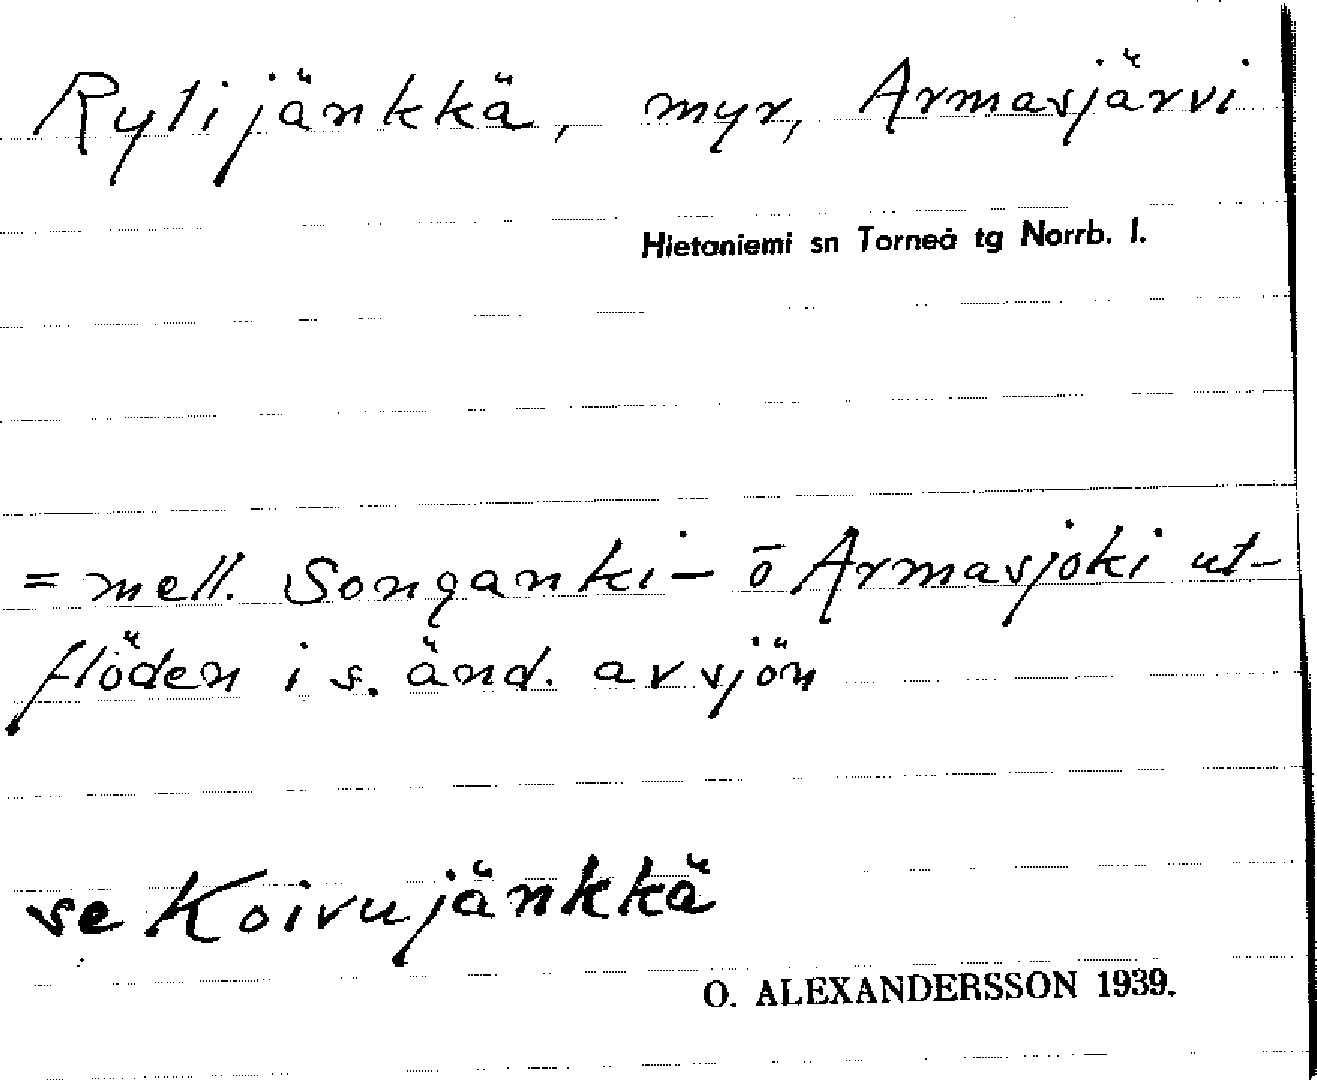 Rylijänkkä, myr, Armasjärvi
Hietaniemi sn Torneå tg Norrb. l.
= mell. Songanki- ō Armasjoki ut-
flöden i s. änd. av sjön
se Koivujänkkä
O. ALEXANDERSSON 1939.